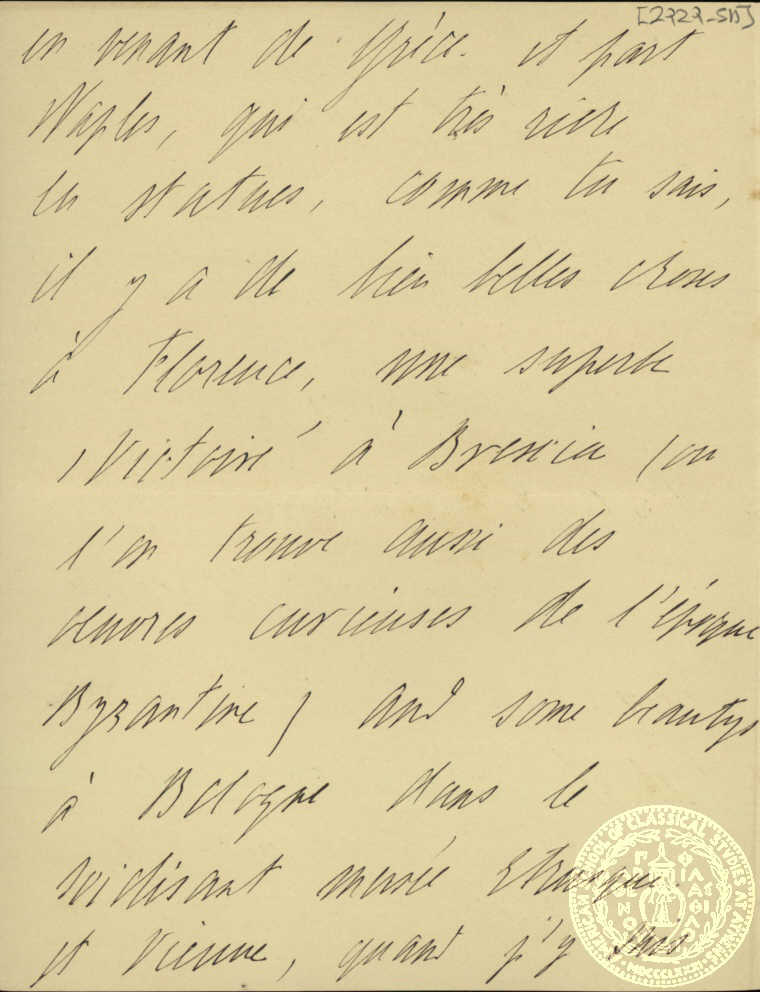 [2722-SD]
en venant de Grèce. et part
Naples, qui est très riche
en statues, comme tu sais,
il y a de bien belles choses
à Florence, une superbe
"Victoire" à Brescia (ou
l'on trouve aussi des
oeuvres curieuses de l'époque
Byzantine) and some beautys
à Bologne dans le
soidisant musée Etrusque.
et Vienne, quand j'y suis
AMERICAN SCHOOL OF CLASSICAL STUDIES AT ATHENS
MDCCCLXXXI